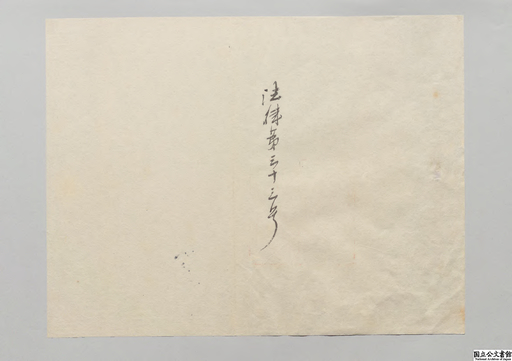 法律第三十三号
国立公文書館
National Archives of Japan